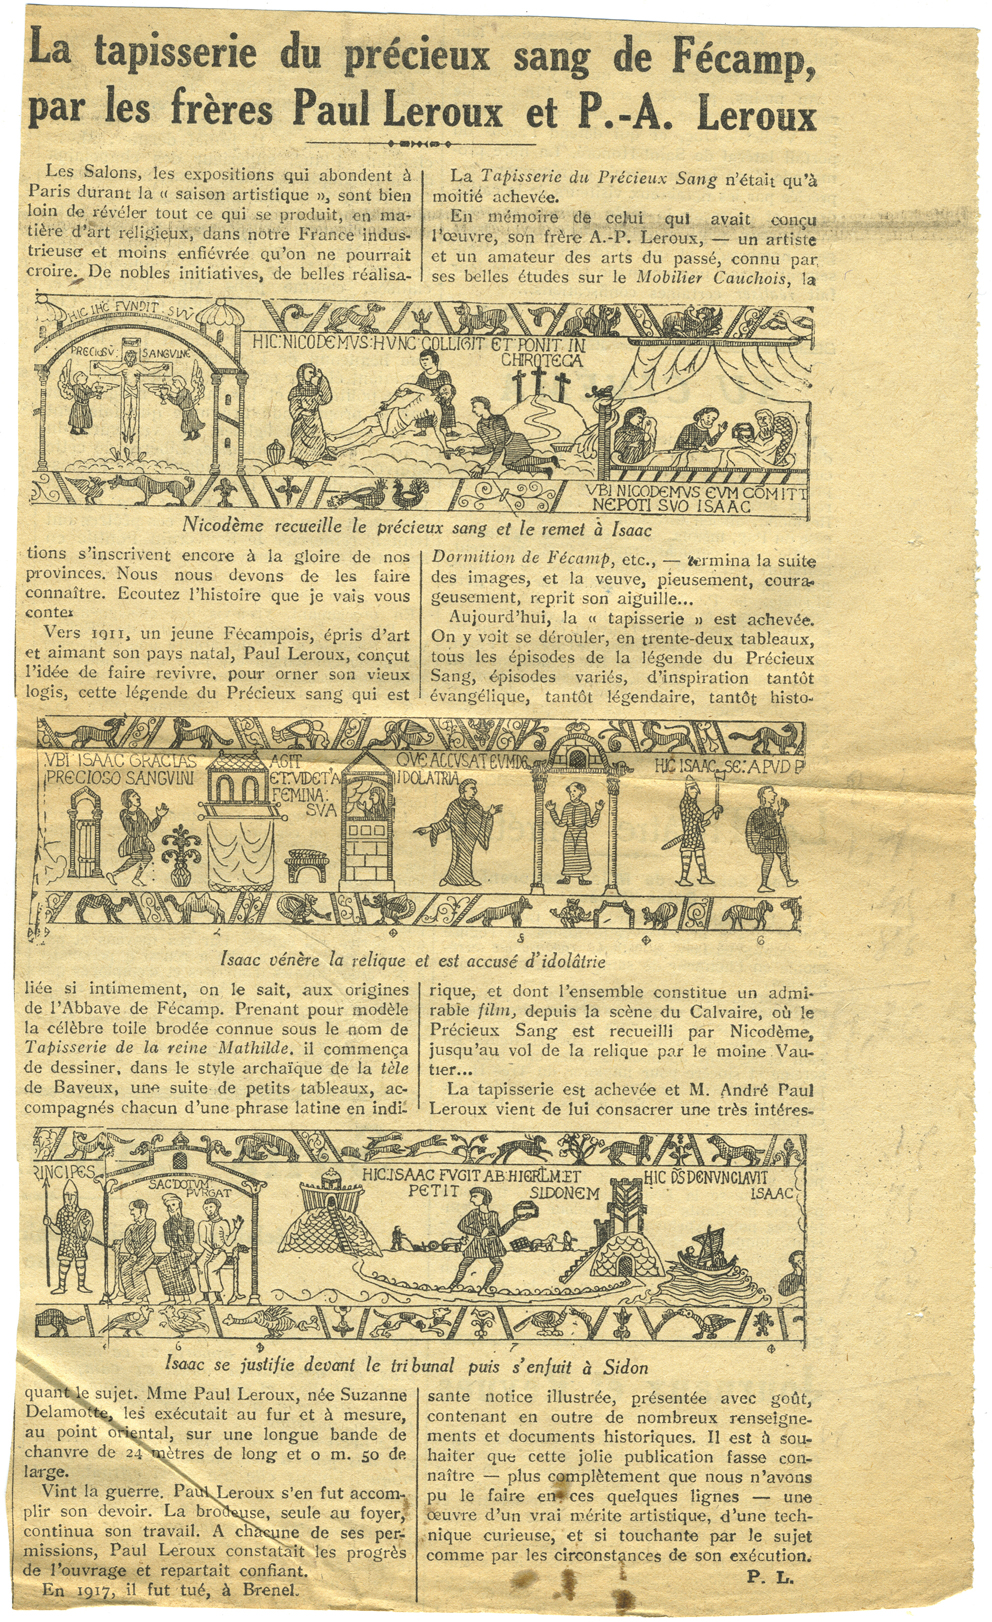 La tapisserie du précieux sang de Fécamp,
par les frères Paul Leroux et P.-A. Leroux
Les Salons, les expositions qui abondent à
Paris durant la « saison artistique », sont bien
loin de révéler tout ce qui se produit, en ma-
tière d'art religieux, dans notre France indus-
trieuse et moins enfiévrée qu'on ne pourrait
croire. De nobles initiatives, de belles réalisa-
HIC IHC FVNDIT SVV
PRECIOSV: SANGVINE
HIC: NICODEMVS: HVNC COLLIGIT ET PONIT IN
CHIROTECA
VBI NICODEMVS EVM COMITT
NEPOTI SVO ISAAC
Nicodème recueille le précieux sang et le remet à Isaac
tions s'inscrivent encore à la gloire de nos
provinces. Nous nous devons de les faire
connaître. Ecoutez l'histoire que je vais vous
conter
Vers 1911, un jeune Fécampois, épris d'art
et aimant son pays natal, Paul Leroux, conçut
l'idée de faire revivre, pour orner son vieux
logis, cette légende du Précieux sang qui est
VBI ISAAC GRACIAS
PRECIOSO SANGVINI
AGIT
ET: VIDET: A
FEMINA:
SVA
QVE ACCVSAT EVM DE
IDOLATRIA
HIC ISAAC SE: APVD P
Isaac vénère la relique et est accusé d'idolâtrie
liée si intimement, on le sait, aux origines
de l'Abbaye de Fécamp. Prenant pour modèle
la célèbre toile brodée connue sous le nom de
Tapisserie de la reine Mathilde, il commença
de dessiner, dans le style archaïque de la tèle
de Bayeux, une suite de petits tableaux, ac-
compagnés chacun d'une phrase latine en indi-
RINCIPES
SACDOTVM
PVRGAT
HIC: ISAAC FVGIT AB HIERLM ET
PETIT SIDONEM
HIC DS DENVNCIAVIT
ISAAC
Isaac se justifie devant le tribunal puis s'enfuit à Sidon
quant le sujet. Mme Paul Leroux, née Suzanne
Delamotte, les exécutait au fur et à mesure,
au point oriental, sur une longue bande de
chanvre de 24 mètres de long et 0 m. 50 de
large.
Vint la guerre. Paul Leroux s'en fut accom-
plir son devoir. La brodeuse, seule au foyer,
continua son travail. A chacune de ses per-
missions, Paul Leroux constatait les progrès
de l'ouvrage et repartait confiant.
En 1917, il fut tué, à Brenel.
La Tapisserie du Précieux Sang n'était qu'à
moitié achevée.
En mémoire de celui qui avait conçu
l'œuvre, son frère A.-P. Leroux, — un artiste
et un amateur des arts du passé, connu par
ses belles études sur le Mobilier Cauchois, la
Dormition de Fécamp, etc., — termina la suite
des images, et la veuve, pieusement, coura-
geusement, reprit son aiguille...
Aujourd'hui, la « tapisserie » est achevée.
On y voit se dérouler, en trente-deux tableaux,
tous les épisodes de la légende du Précieux
Sang, épisodes variés, d'inspiration tantôt
évangélique, tantôt légendaire, tantôt histo-
rique, et dont l'ensemble constitue un admi-
rable film, depuis la scène du Calvaire, où le
Précieux Sang est recueilli par Nicodème,
jusqu'au vol de la relique par le moine Vau-
tier...
La tapisserie est achevée et M. André Paul
Leroux vient de lui consacrer une très intéres-
sante notice illustrée, présentée avec goût,
contenant en outre de nombreux renseigne-
ments et documents historiques. Il est à sou-
haiter que cette jolie publication fasse con-
naître — plus complètement que nous n'avons
pu le faire en ces quelques lignes — une
œuvre d'un vrai mérite artistique, d'une tech-
nique curieuse, et si touchante par le sujet
comme par les circonstances de son exécution.
P. L.